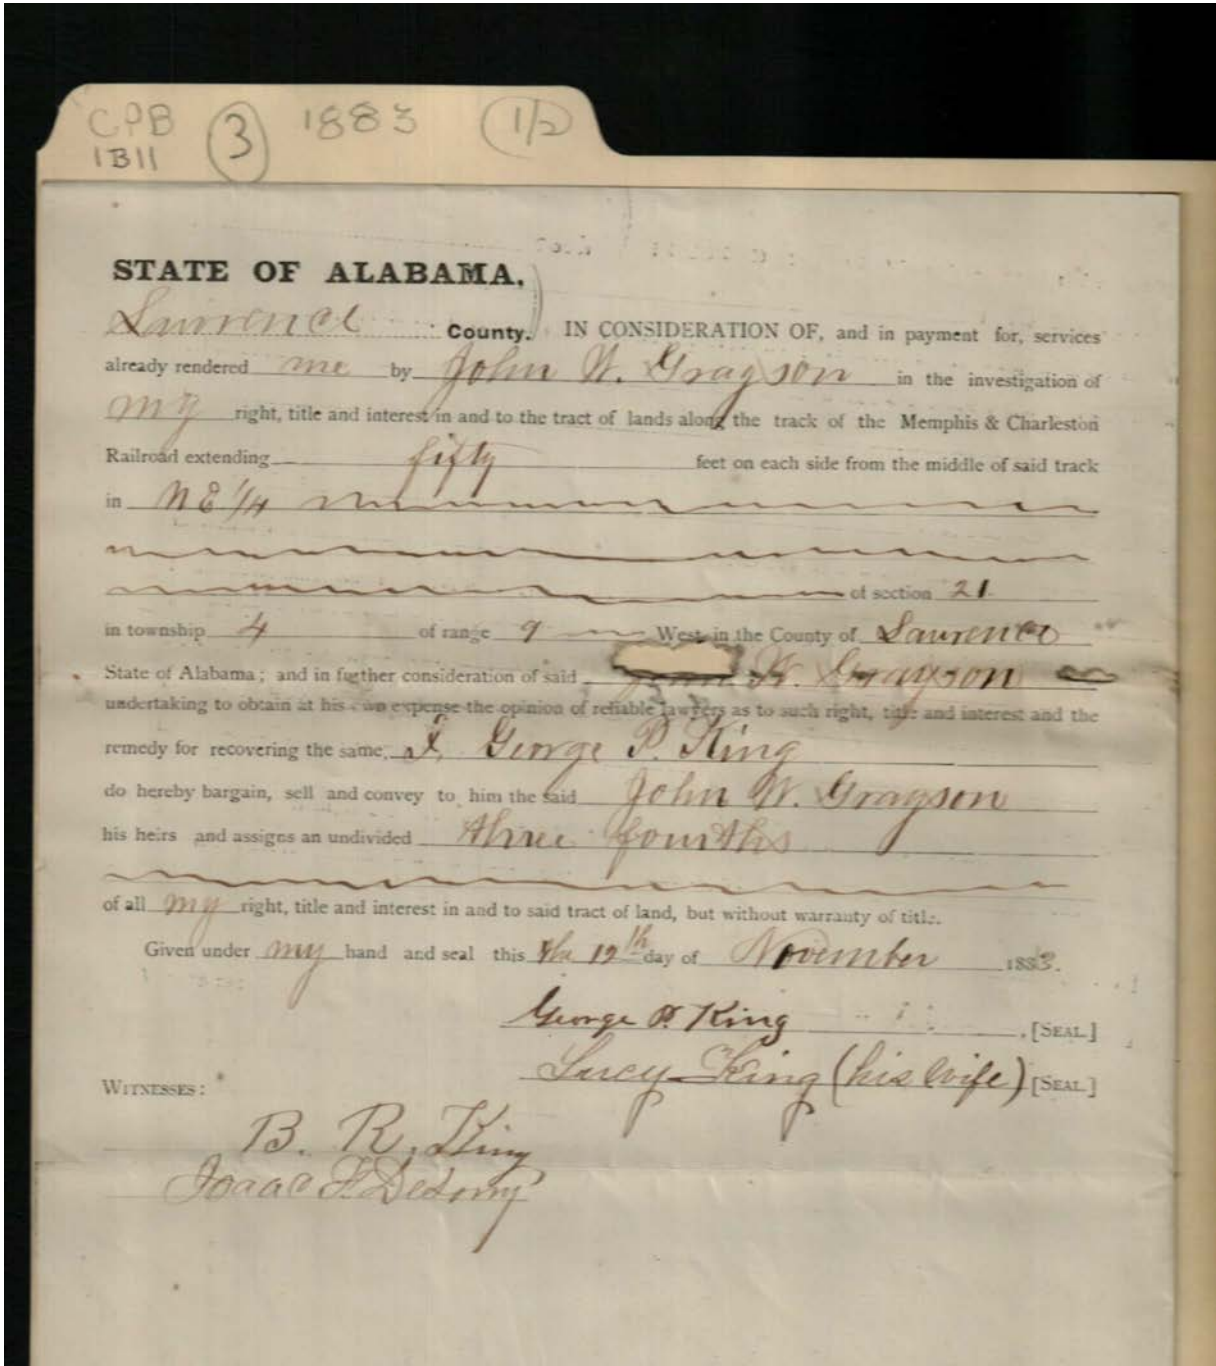 CPB 3 1883 1/2
1B11
STATE OF ALABAMA,
Lawrence County. IN CONSIDERATION OF, and in payment for, services
already rendered me by John W. Grayson in the investigation of
my right, title and interest in and to the tract of lands along the track of the Memphis & Charleston
Railroad extending fifty feet on each side from the middle of said track
in NE 1/4
of section 21
in township 4 of range 9 West, in the County of Lawrence
State of Alabama; and in further consideration of said W. Grayson
undertaking to obtain at his own expense the opinion of reliable lawyers as to such right, title and interest and the
remedy for recovering the same, I, George P. King
do hereby bargain, sell and convey to him the said John W. Grayson
his heirs and assigns an undivided three fourths
of all my right, title and interest in and to said tract of land, but without warranty of title.
Given under my hand and seal this the 12th day of November 1883.
George P. King [SEAL]
Lucy King (his wife) [SEAL]
WITNESSES:
B. R. King
Isaac F.